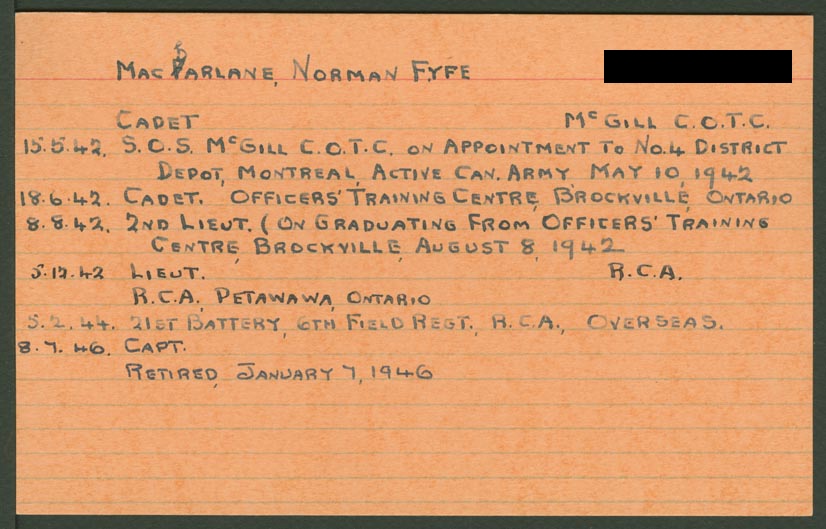 MacFarlane, Norman Fyfe
Cadet McGill C.O.T.C.
15.5.42. S.O.S. McGill C.O.T.C. on Appointment to No.4 District
Depot, Montreal, Active Can. Army May 10, 1942
18.6.42. Cadet. Officers' Training Centre, Brockville, Ontario
8.8.42. 2nd Lieut. (On Graduating From Officers' Training
Centre, Brockville, August 8, 1942
5.12.42 Lieut. R.C.A.
R.C.A., Petawawa, Ontario
5.2.44. 21st Battery, 6th Field Regt., R.C.A., Overseas.
8.7.46. Capt.
Retired, January 7, 1946